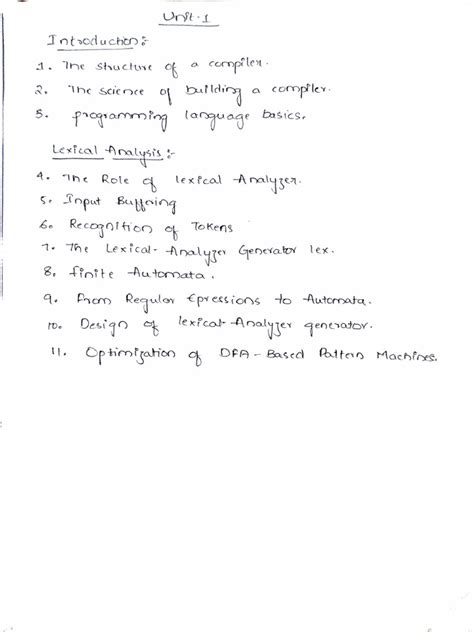 Unit-1
Introduction:-
1. The structure of a compiler.
2. The science of building a compiler.
3. programming language basics.
Lexical Analysis:-
4. The Role of lexical Analyzer.
5. Input Buffring
6. Recognition of Tokens
7. The Lexical-Analyzer Generator lex.
8. finite Automata.
9. from Regular Epressions to Automata.
10. Design of lexical-Analyzer generator.
11. Optimization of DFA-Based Pattern Machines.